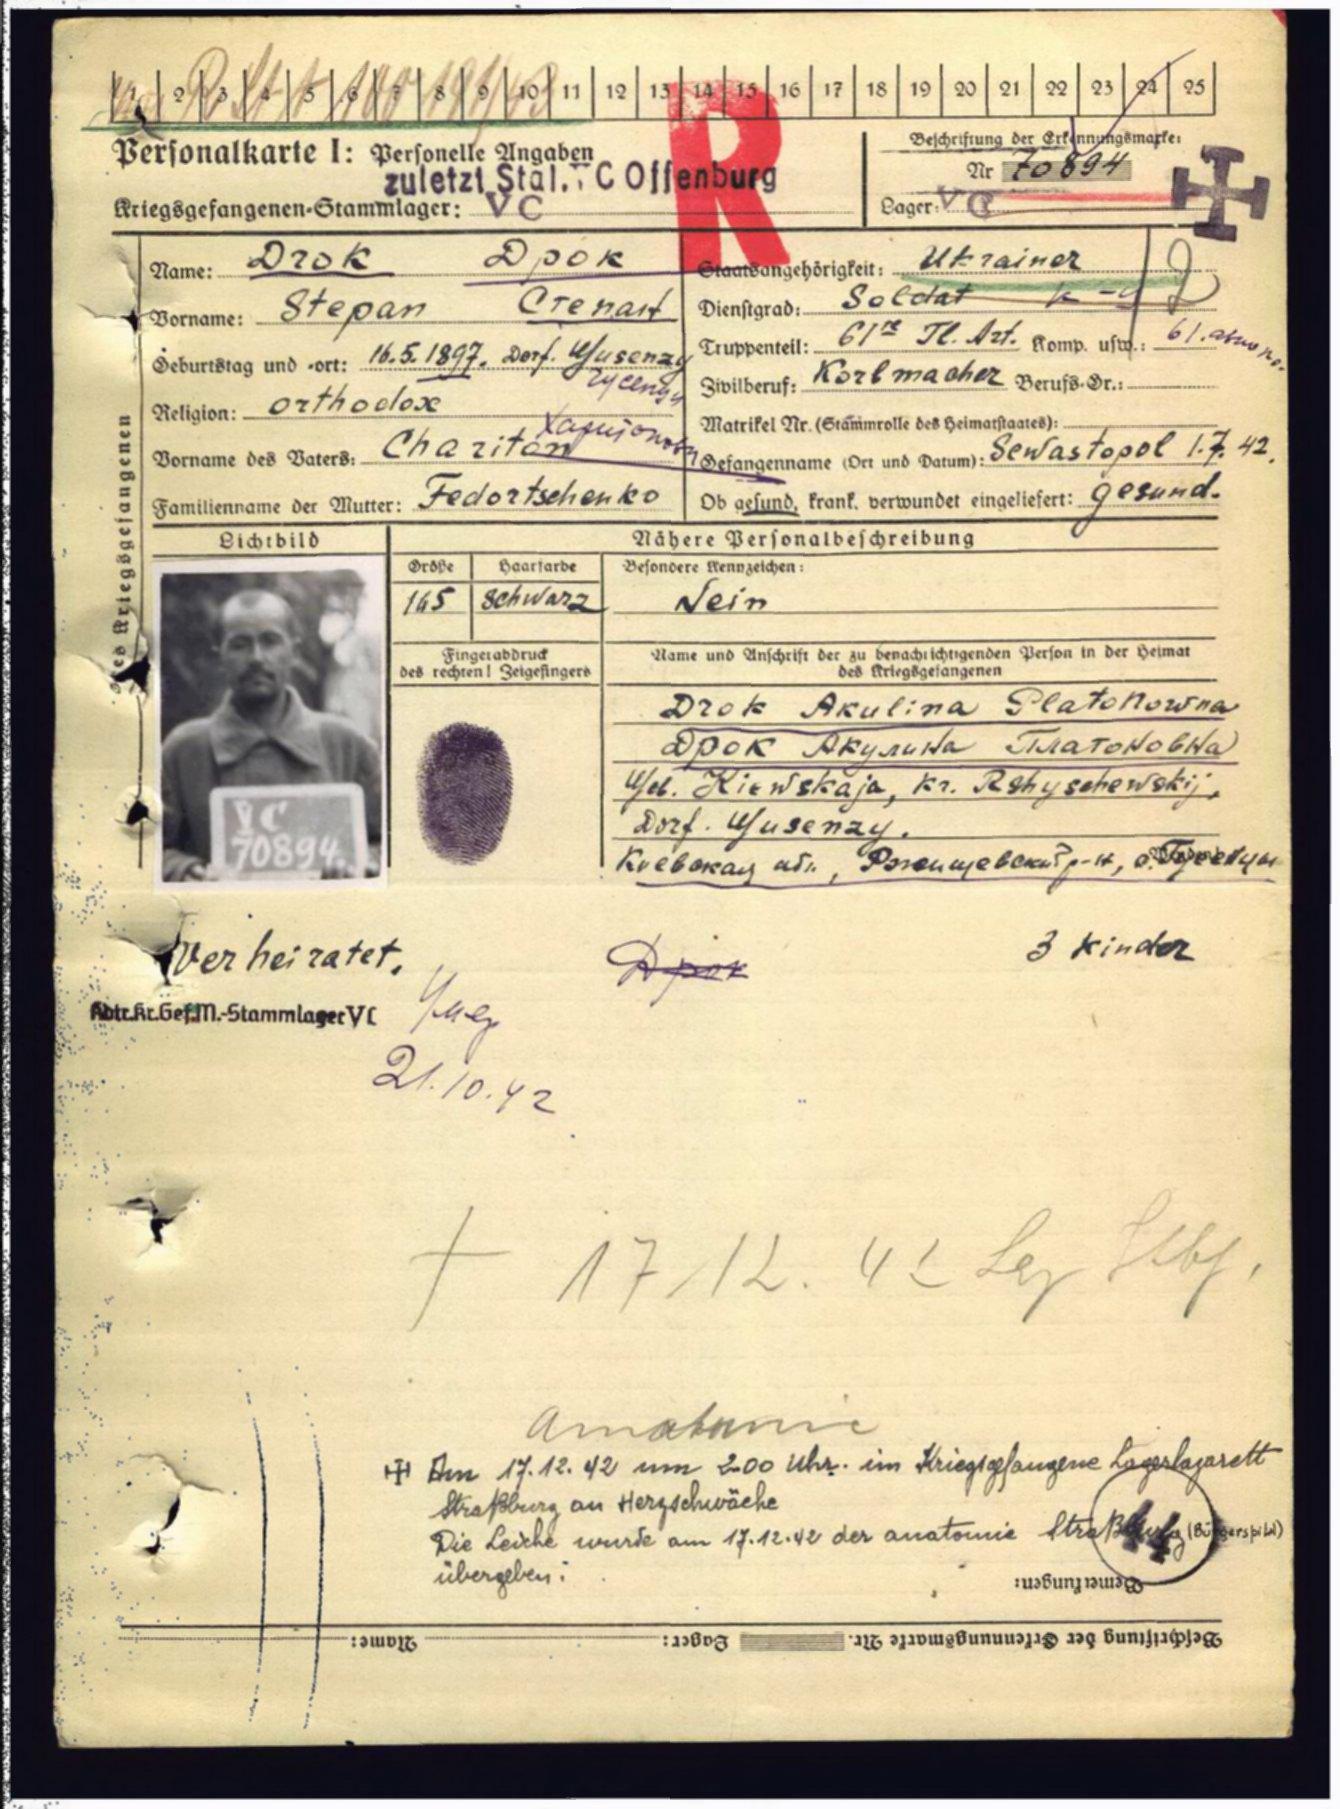 1 2 3 4 5 6 7 8 9 10 11 12 13 14 15 16 17 18 19 20 21 22 23 24 25
R
Personalkarte I: Personelle Angaben
zuletzt Stal. V C Offenburg
Kriegsgefangenen-Stammlager: V C
Beschriftung der Erkennungsmarke:
Nr 70894
Lager: V C
Name: Drok Дрок
Vorname: Stepan Степан
Geburtstag und -ort: 16.5.1897. Dorf.
Religion: orthodox
Vorname des Vaters: Chariton
Familienname der Mutter: Fedortschenko
Staatsangehörigkeit: Ukrainer
Dienstgrad: Soldat
Truppenteil: 61 Fl. Art. Komp. usw.: 61.
Zivilberuf: Korbmacher Berufs-Gr.:
Matrikel Nr. (Stammrolle des Heimatstaates):
Gefangenname (Ort und Datum): Sewastopol 1.7.42.
Ob gesund, krank, verwundet eingeliefert: gesund.
des Kriegsgefangenen
Lichtbild
Nähere Personalbeschreibung
Größe Haarfarbe Besondere Kennzeichen:
165 schwarz Nein
Fingerabdruck
des rechten! Zeigefingers
Name und Anschrift der zu benachrichtigenden Person in der Heimat
des Kriegsgefangenen
Drok Akulina Platonowna
Дрок Акулина Платоновна
Geb. Kiewskaja, Kr. Rshyschewskij,
Dorf.
Киевская обл., р-н, с.
V C
70894.
Verheiratet. Дрок 3 Kinder
Kdtr.Kr.Gef.M.-Stammlager V C
21.10.42
† 17.12.42 Laz
Anatomie
Am 17.12.42 um 2.00 Uhr. im Kriegsgefangene Lagerlazarett
Straßburg an Herzschwäche
Die Leiche wurde am 17.12.42 der anatomie Straßburg (Bürgerspital)
übergeben.
44
Bemerkungen:
Beschriftung der Erkennungsmarke Nr. Lager: Name: